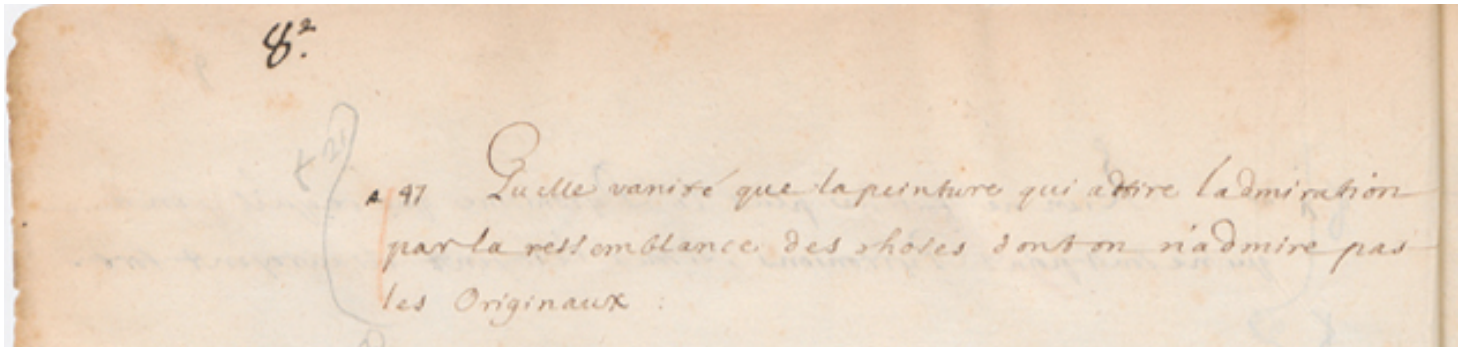 8.²
+ 21
A 47 Quelle vanité que la peinture qui attire ladmiration
par la ressemblance des choses dont on n'admire pas
les Originaux :